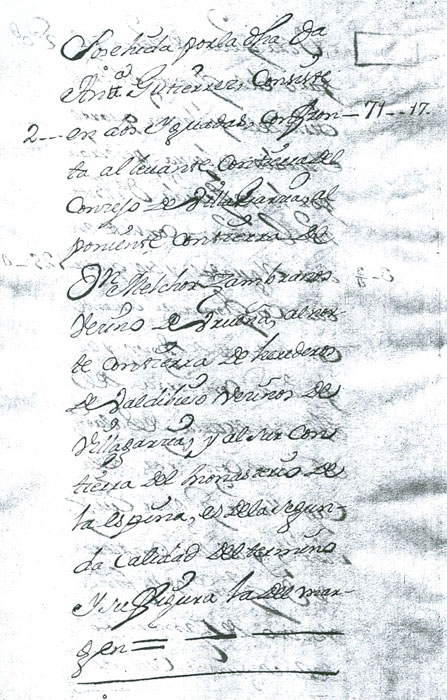 Posehida por la dha Da
Anta. Gutierrez, Consiste
2 -- en dos Yguadas, confron- 71 -- 17.
ta al levante con tierra del
Conzejo de Villagarzia, al
poniente con tierra de
Dn. Melchor Zambranos
Vezino de Urueña, al nor-
te con tierra de herederos
de Valdibieso Vezinos de
Villagarzia, y al sur con
tierra del Monasterio de
la espina, es de la segun-
da Calidad del termino
Y su figura la del mar-
gen